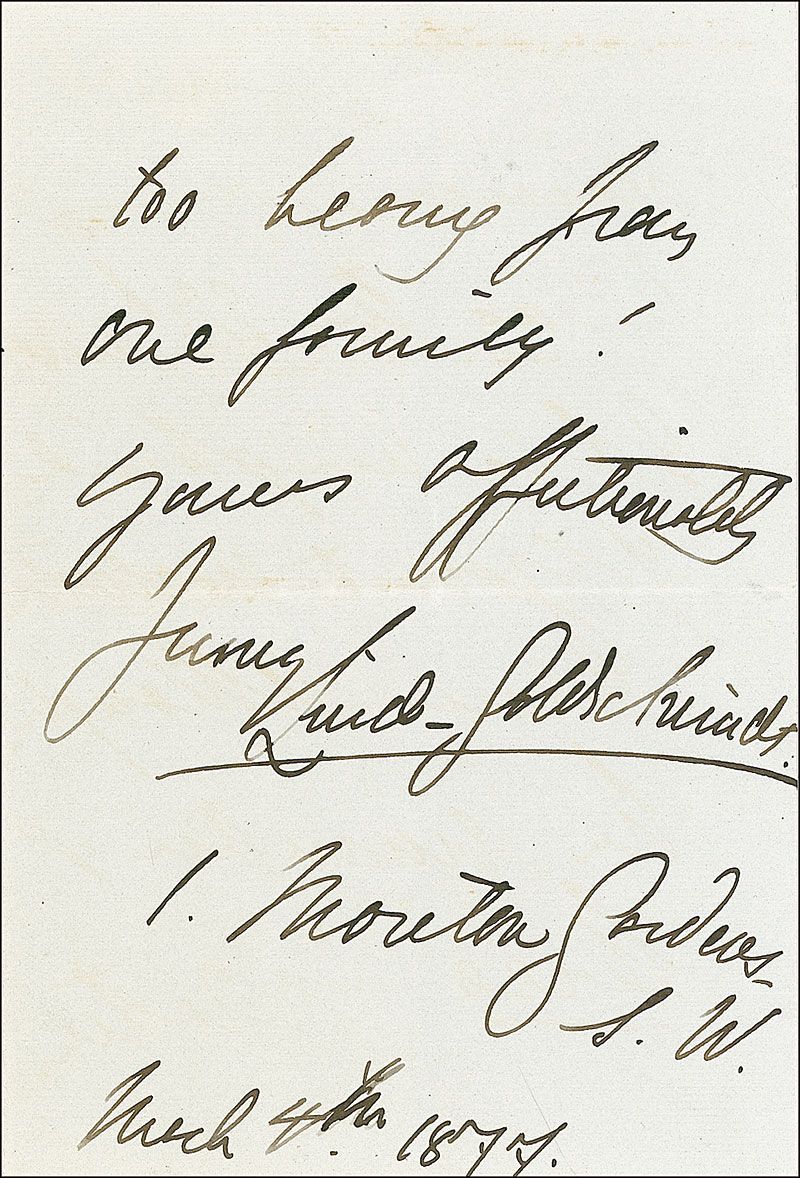 too heavy from
one family!
yours affectionately
Jenny
Lind-Goldschmidt.
1. Moreton Gardens
S. W.
March 4th. 1877.